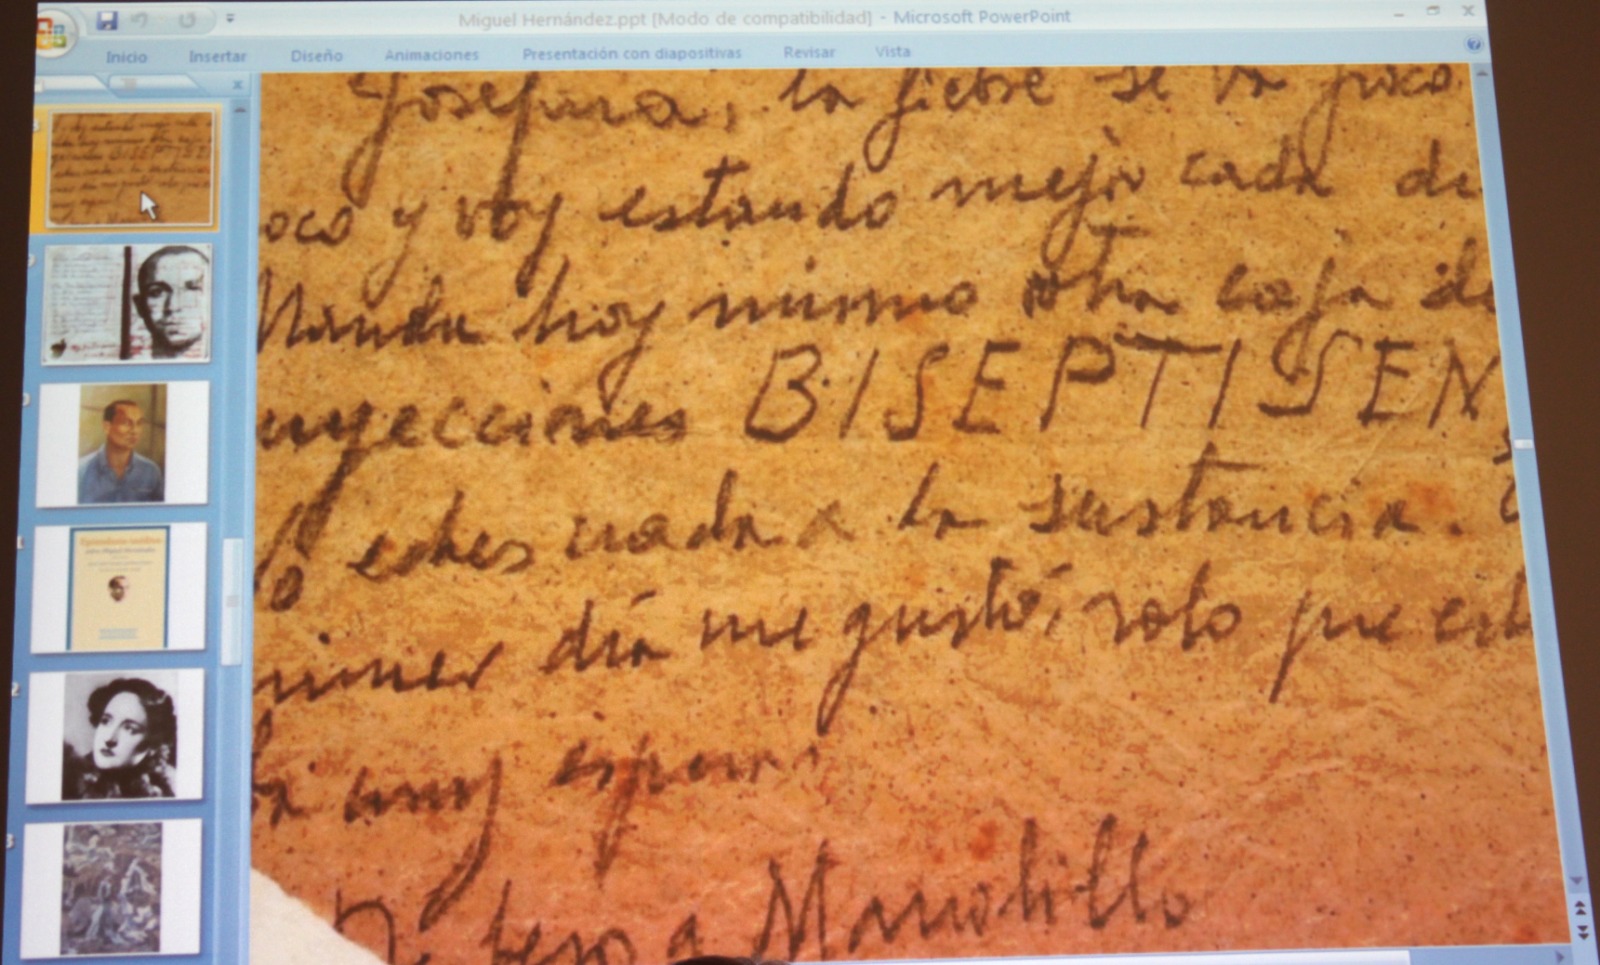 Miguel Hernández.ppt [Modo de compatibilidad] - Microsoft PowerPoint
Inicio Insertar Diseño Animaciones Presentación con diapositivas Revisar Vista
Josefina, la fiebre se va poco
oco y voy estando mejor cada dí
Manda hoy mismo otra caja de
inyecciones BISEPTISEN
No eches nada a la sustancia.
rimer día me gustó, solo que est
ba muy espesa.
beso a Manolillo